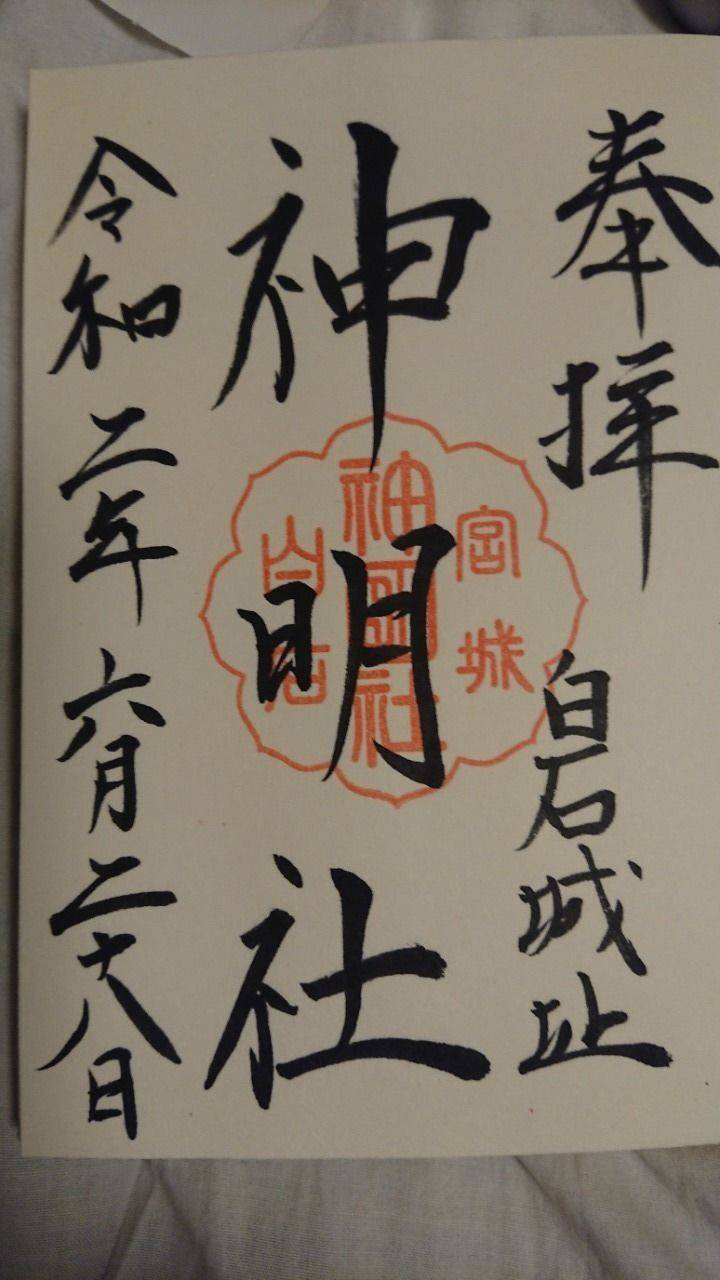 奉拝
白石城址
神明社
令和二年六月二十八日
宮城
神明社
白石